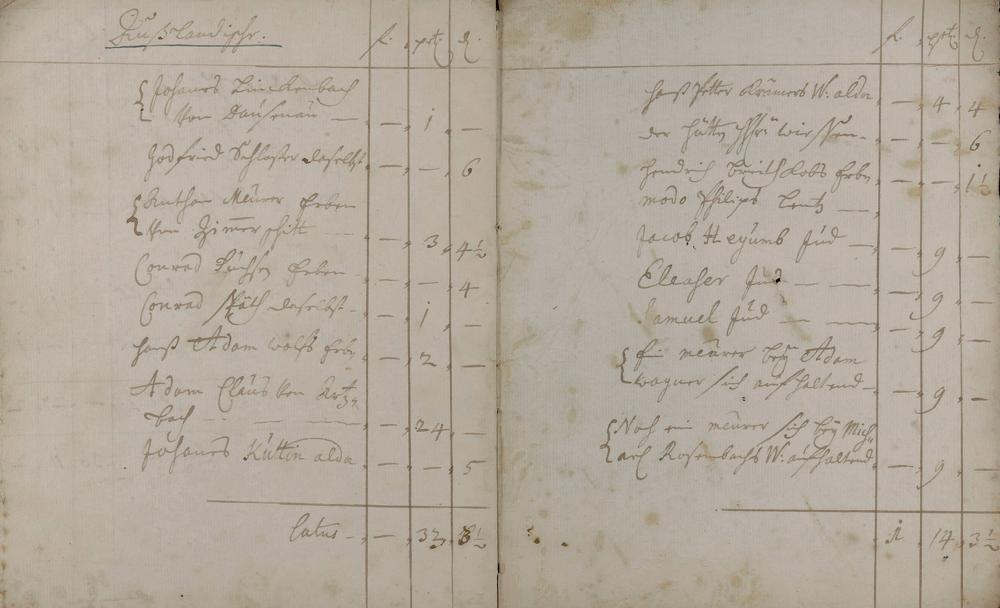 Außländische.
f. ptz d.
Johanes Linckenbach
Von Dausenau — — 1 —
Godfried Schloßer daselbst — — 6
Anthon Meurer Erben
Von Zimmerschitt — — 3 4½
Conrad Erben — — — 4
Conrad Späth daselbst — — 1 —
Hanß Adam Wolffs Erben — 2 —
Adam Claus von
bach — — — 24 —
Johanes Küttin alda — — 5
Latus — — 32 8½
f. ptz d.
Hanß Petter Krämers W: alda — 4 4
der — — 6
Hendrich Erben — — 1½
modo Philips Lentz —
Jacob Heyumb Jud — — 9 —
Eleaser Jud — — — 9 —
Samuel Jud — — — 9 —
Ein meurer bey Adam
Wagner sich aufhaltend — — 9 —
Noch ein meurer sich bey Mich
ael Rosenbachs W: aufhaltend — 9 —
1 14 3½